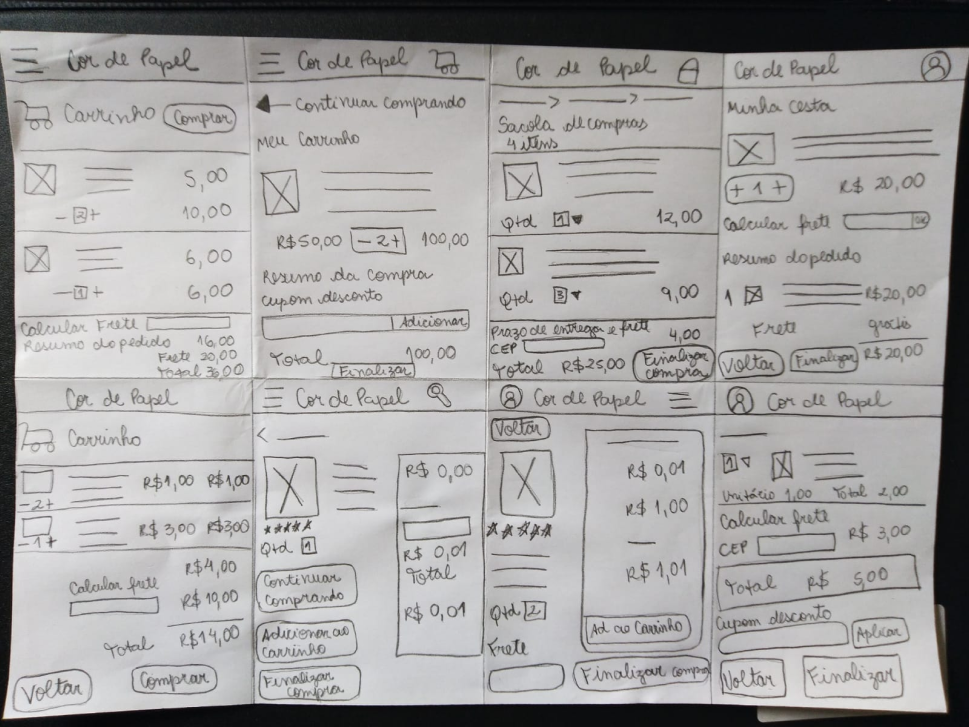 Cor de Papel
Carrinho Comprar
5,00
- 2 +
10,00
6,00
- 1 +
6,00
Calcular Frete
Resumo do pedido 16,00
Frete 20,00
Total 36,00
Cor de Papel
Continuar comprando
Meu Carrinho
R$50,00 - 2 + 100,00
Resumo da compra
Cupom desconto
Adicionar
Total 100,00
Finalizar
Cor de Papel
Sacola de compras
4 itens
Qtd 1 12,00
Qtd 3 9,00
Prazo de entrega e frete
4,00
CEP
Total R$25,00 Finalizar compra
Cor de Papel
Minha cesta
+ 1 + R$ 20,00
Calcular frete OK
Resumo do pedido
1 R$20,00
Frete grátis
R$20,00
Voltar Finalizar
Cor de Papel
Carrinho
R$1,00 R$1,00
- 2 +
R$ 3,00 R$3,00
- 1 +
R$4,00
Calcular frete
R$ 10,00
Total R$14,00
Voltar Comprar
Cor de Papel
R$ 0,00
Qtd 1
R$ 0,01
Total
R$ 0,01
Continuar comprando
Adicionar ao carrinho
Finalizar compra
Cor de Papel
Voltar
R$ 0,01
R$ 1,00
R$ 1,01
Qtd 2
Ad ao Carrinho
Frete
Finalizar compra
Cor de Papel
1
Unitário 1,00 Total 2,00
Calcular frete
CEP R$ 3,00
Total R$ 5,00
Cupom desconto
Aplicar
Voltar Finalizar